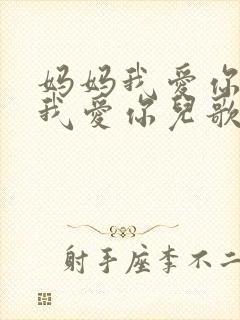 妈妈我爱你
我爱你儿歌
射手座李不二